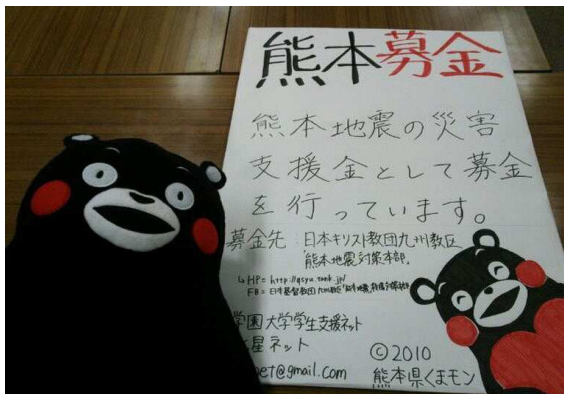 熊本募金
熊本地震の災害
支援金として募金
を行っています。
募金先:日本キリスト教団九州教区
"熊本地震対策本部"
↳HP= http://qsyu.tank.jp/
FB=日本基督教団九州教区
学園大学学生支援ネット
星ネット
et@gmail.com
©2010
熊本県くまモン